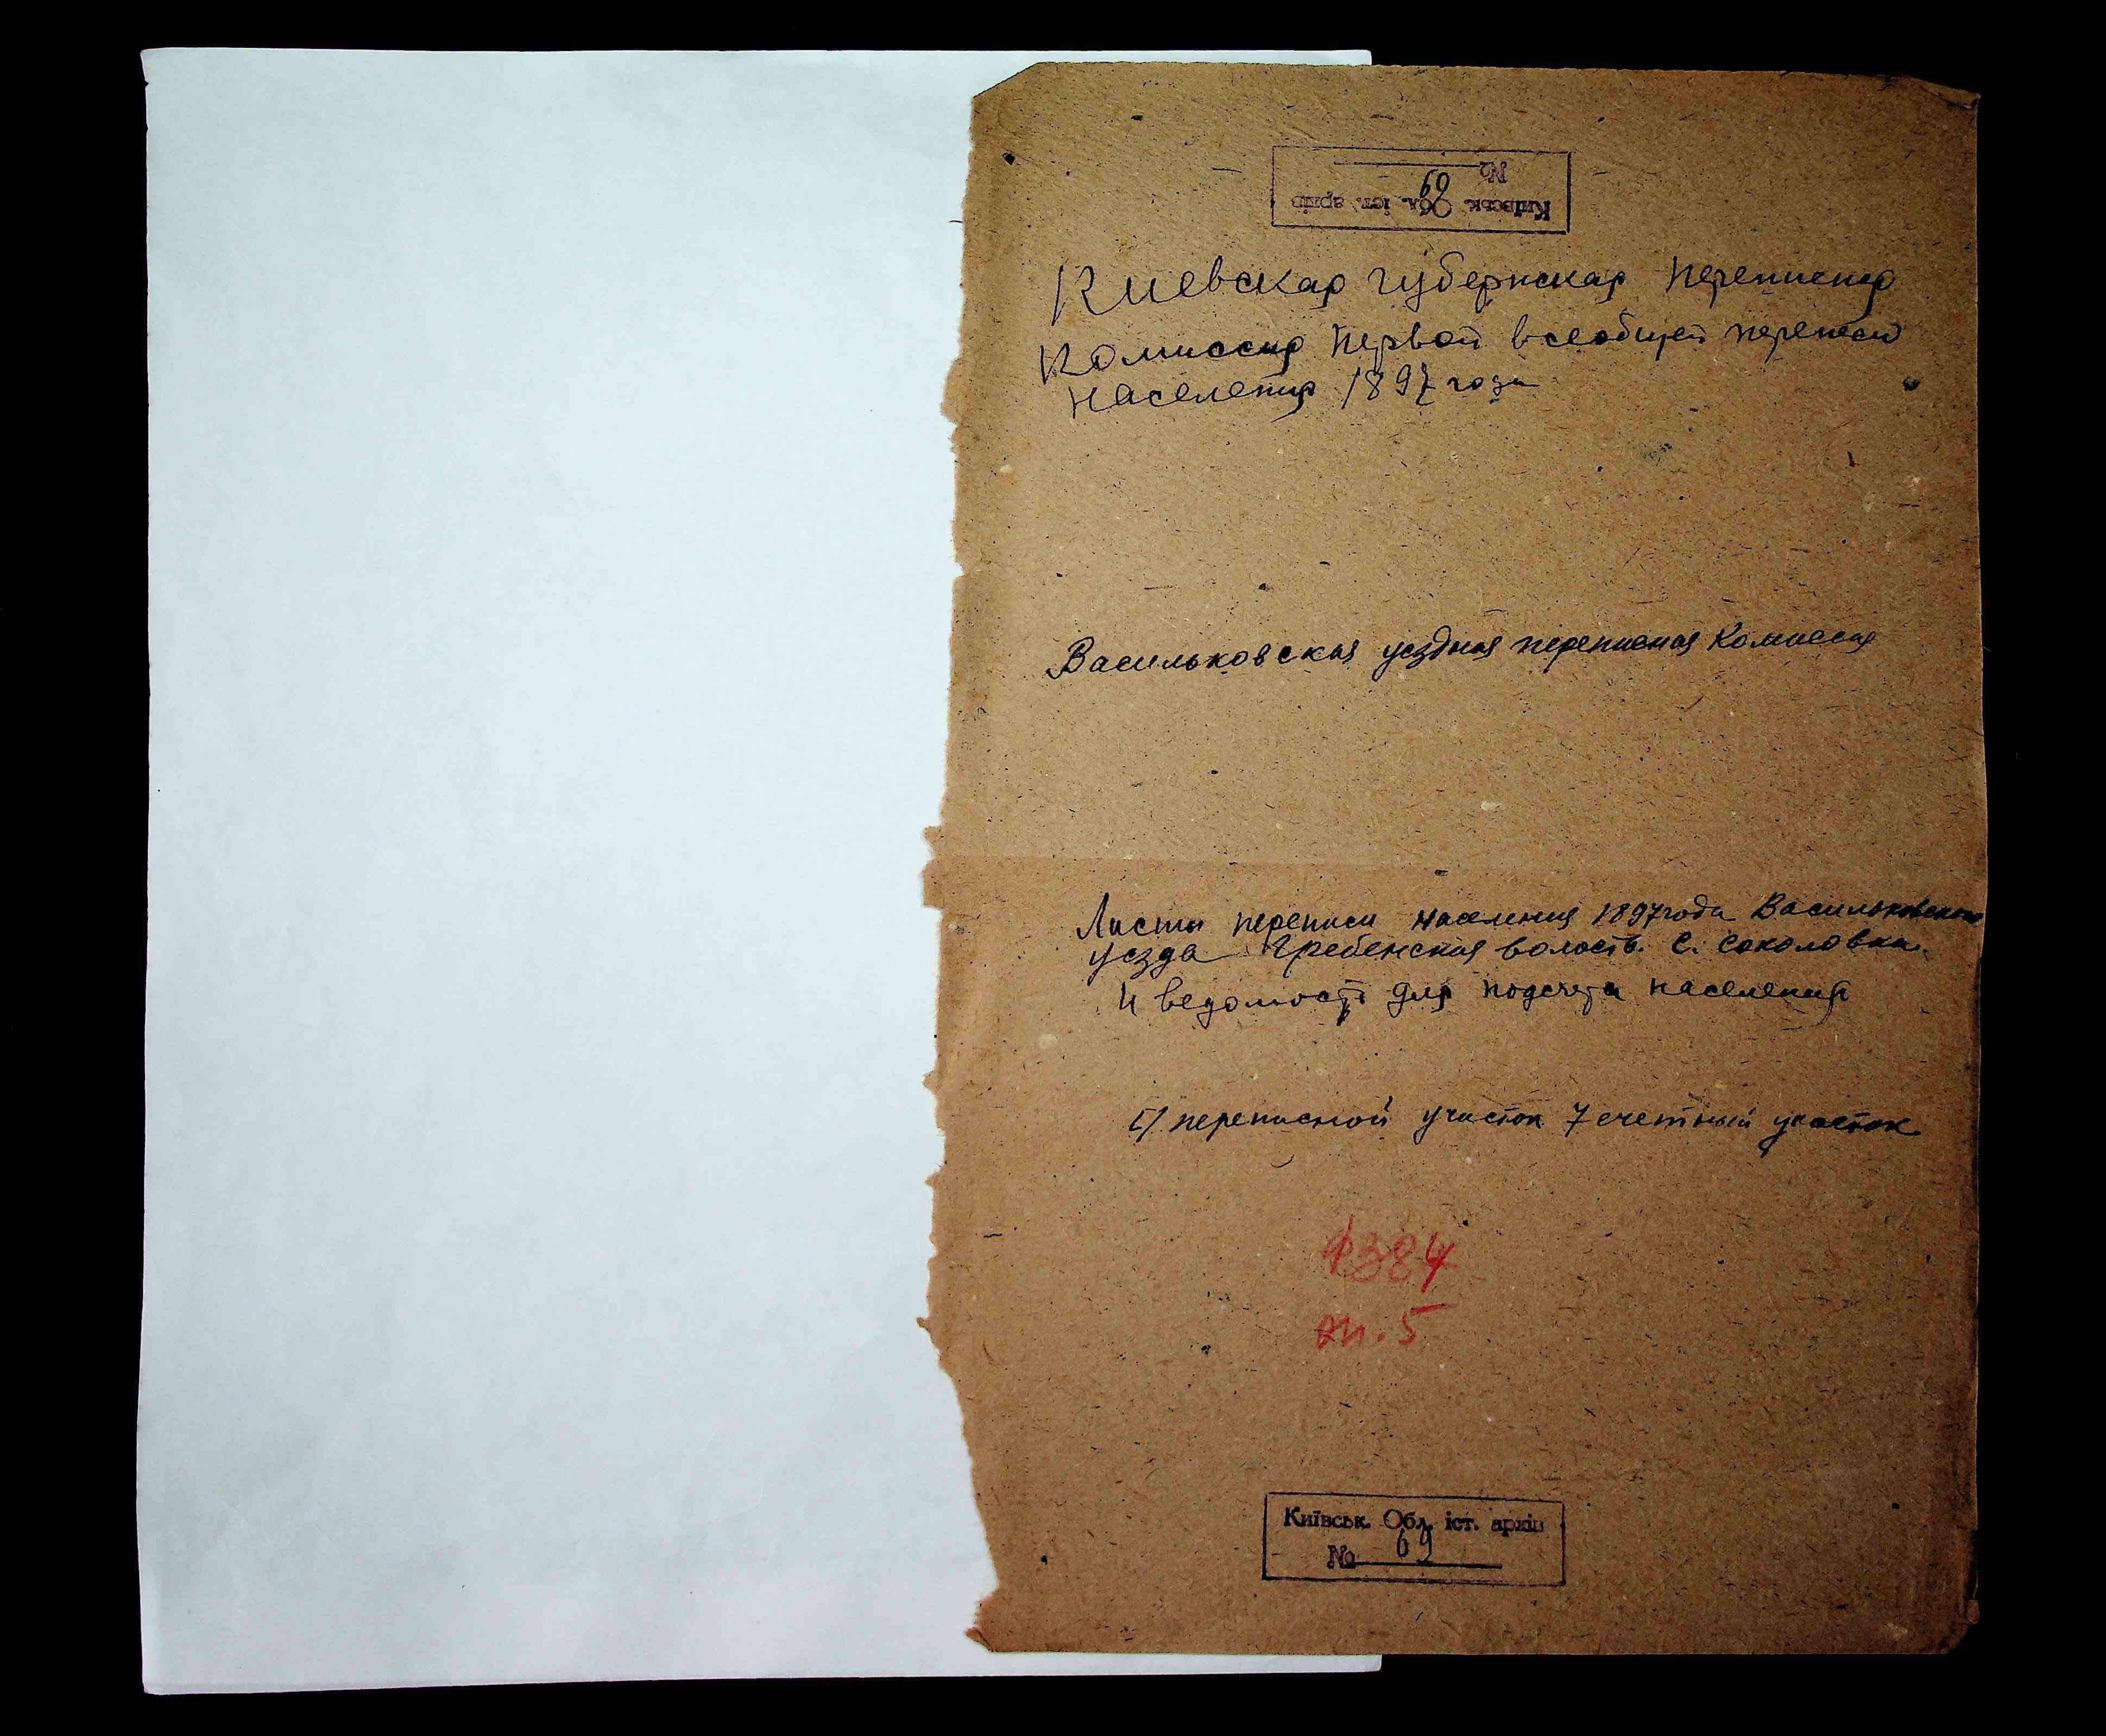 Київськ. Обл. іст. архів
№ 69
Киевская губернская переписная
комиссия первой всеобщей переписи
населения 1897 года
Васильковская уездная переписная комиссия
Листы переписи населения 1897 года Васильковского
уезда Гребенская волость. С. Соколовка.
и ведомость для подсчета населения
переписной участок 7 счетный участок
Ф384
оп. 5
Київськ. Обл. іст. архів
№ 69